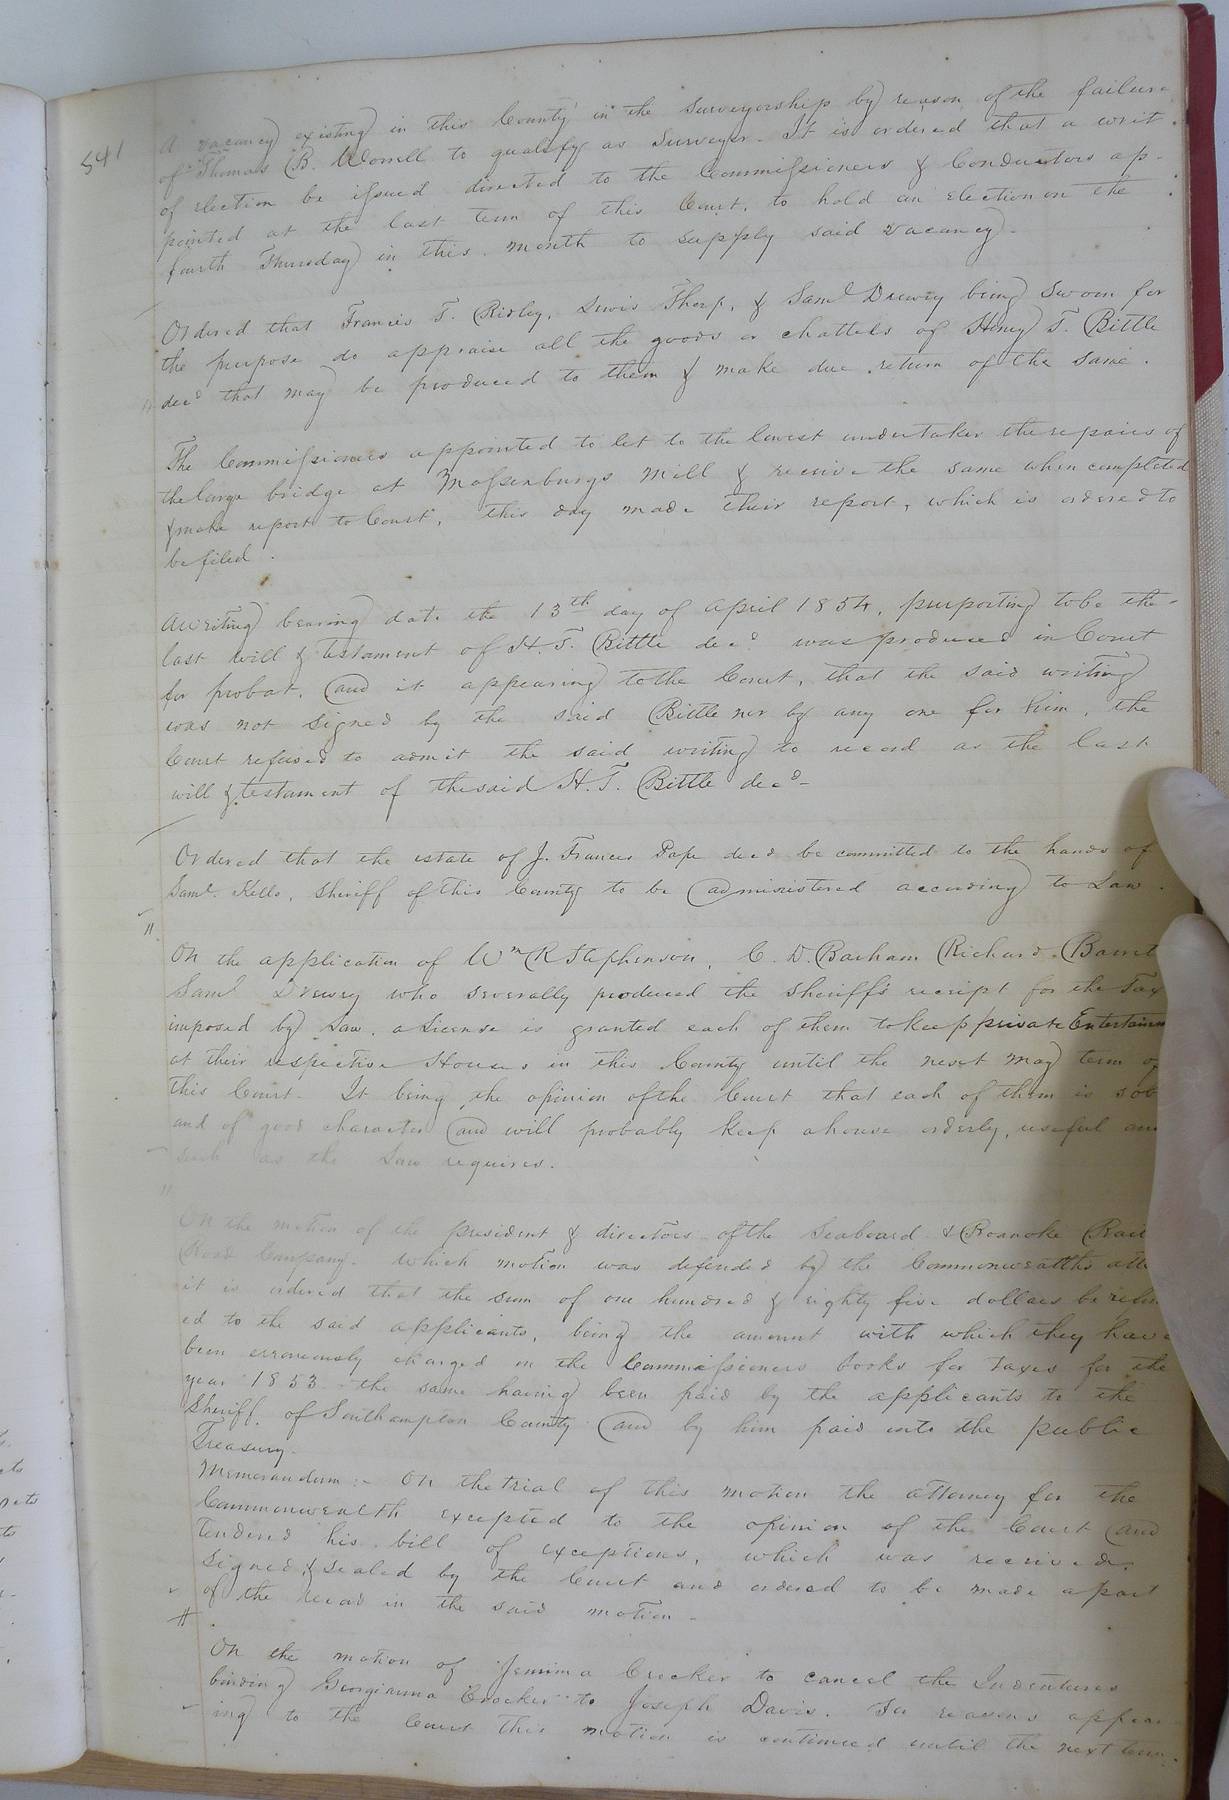 541
A vacancy existing in this County in the Surveyorship by reason of the failure
of Thomas B. Worrell to qualify as Surveyor. It is ordered that a writ
of election be issued directed to the Commissioners & Conductors ap-
pointed at the last term of this Court, to hold an election on the
fourth Thursday in this month to supply said vacancy.
Ordered that Francis T. Ridley, Lewis Thorp, & Saml Drewry being sworn for
the purpose do appraise all the goods or chattels of Henry T. Bittle
decd that may be produced to them & make due return of the same.
The Commissioners appointed to let to the lowest undertaker the repairs of
the large bridge at Massenburgs Mill & receive the same when completed
& make report to Court, this day made their report, which is ordered to
be filed.
A writing bearing date the 13th day of April 1854, purporting to be the
last will & testament of H. T. Bittle decd was produced in Court
for probat, and it appearing to the Court, that the said writing
was not signed by the said Bittle nor by any one for him, the
Court refused to admit the said writing to record as the last
will & testament of the said H. T. Bittle decd-
Ordered that the estate of J. Frances Pope decd be committed to the hands of
Saml. Kello, Sheriff of this County to be administered according to Law.
On the application of Wm R Stephenson, C. D. Barham Richard Barret
Saml Drewry who severally produced the sheriff's receipt for the Tax
imposed by Law, a License is granted each of them to keep private Entertainm
at their respective Houses in this County until the next May term of
this Court. It being the opinion of the Court that each of them is sob
and of good character and will probably keep a house orderly, useful and
such as the Law requires.
On the motion of the president & directors of the Seaboard & Roanoke Rail
Road Company. Which motion was defended by the Commonwealths atto
it is ordered that the sum of one hundred & eighty five dollars be refun
ed to the said applicants, being the amount with which they have
been erroneously charged on the Commissioners books for taxes for the
year 1853 the same having been paid by the applicants to the
Sheriff of Southampton County and by him paid into the public
Treasury.
Memorandum:- On the trial of this motion the attorney for the
Commonwealth excepted to the opinion of the Court and
tendered his bill of exceptions, which was received,
signed & sealed by the Court and ordered to be made a part
of the record in the said motion-
On the motion of Jemima Crocker to cancel the Indentures
binding Georgianna Crocker to Joseph Davis. For reasons appear
ing to the Court this motion is continued until the next term.